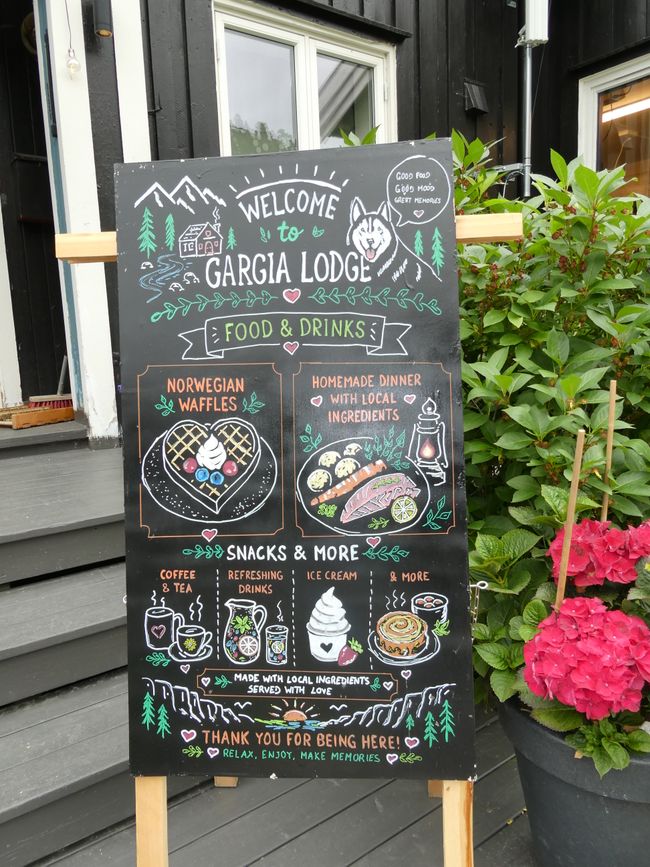 WELCOME
to
GARGIA LODGE
GOOD FOOD
GOOD MOOD
GREAT MEMORIES
FOOD & DRINKS
NORWEGIAN
WAFFLES
HOMEMADE DINNER
WITH LOCAL
INGREDIENTS
SNACKS & MORE
COFFEE
& TEA
REFRESHING
DRINKS
ICE CREAM
& MORE
MADE WITH LOCAL INGREDIENTS
SERVED WITH LOVE
THANK YOU FOR BEING HERE!
RELAX, ENJOY, MAKE MEMORIES